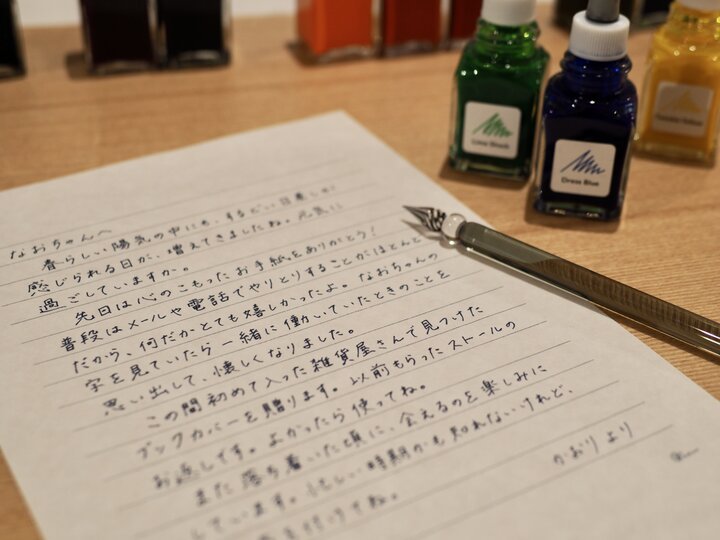 なおちゃんへ
春らしい陽気の中にも、するどい日差しが
感じられる日が、増えてきましたね。元気に
過ごしていますか。
先日は心のこもったお手紙をありがとう！
普段はメールや電話でやりとりすることがほとんど
だから、何だかとても嬉しかったよ。なおちゃんの
字を見ていたら一緒に働いていたときのことを
思い出して、懐しくなりました。
この間初めて入った雑貨屋さんで見つけた
ブックカバーを贈ります。以前もらったストールの
お返しです。よかったら使ってね。
また落ち着いた頃に、会えるのを楽しみに
しています。忙しい時期かも知れないけれど、
を付けてね。
かおりより
Dress Blue